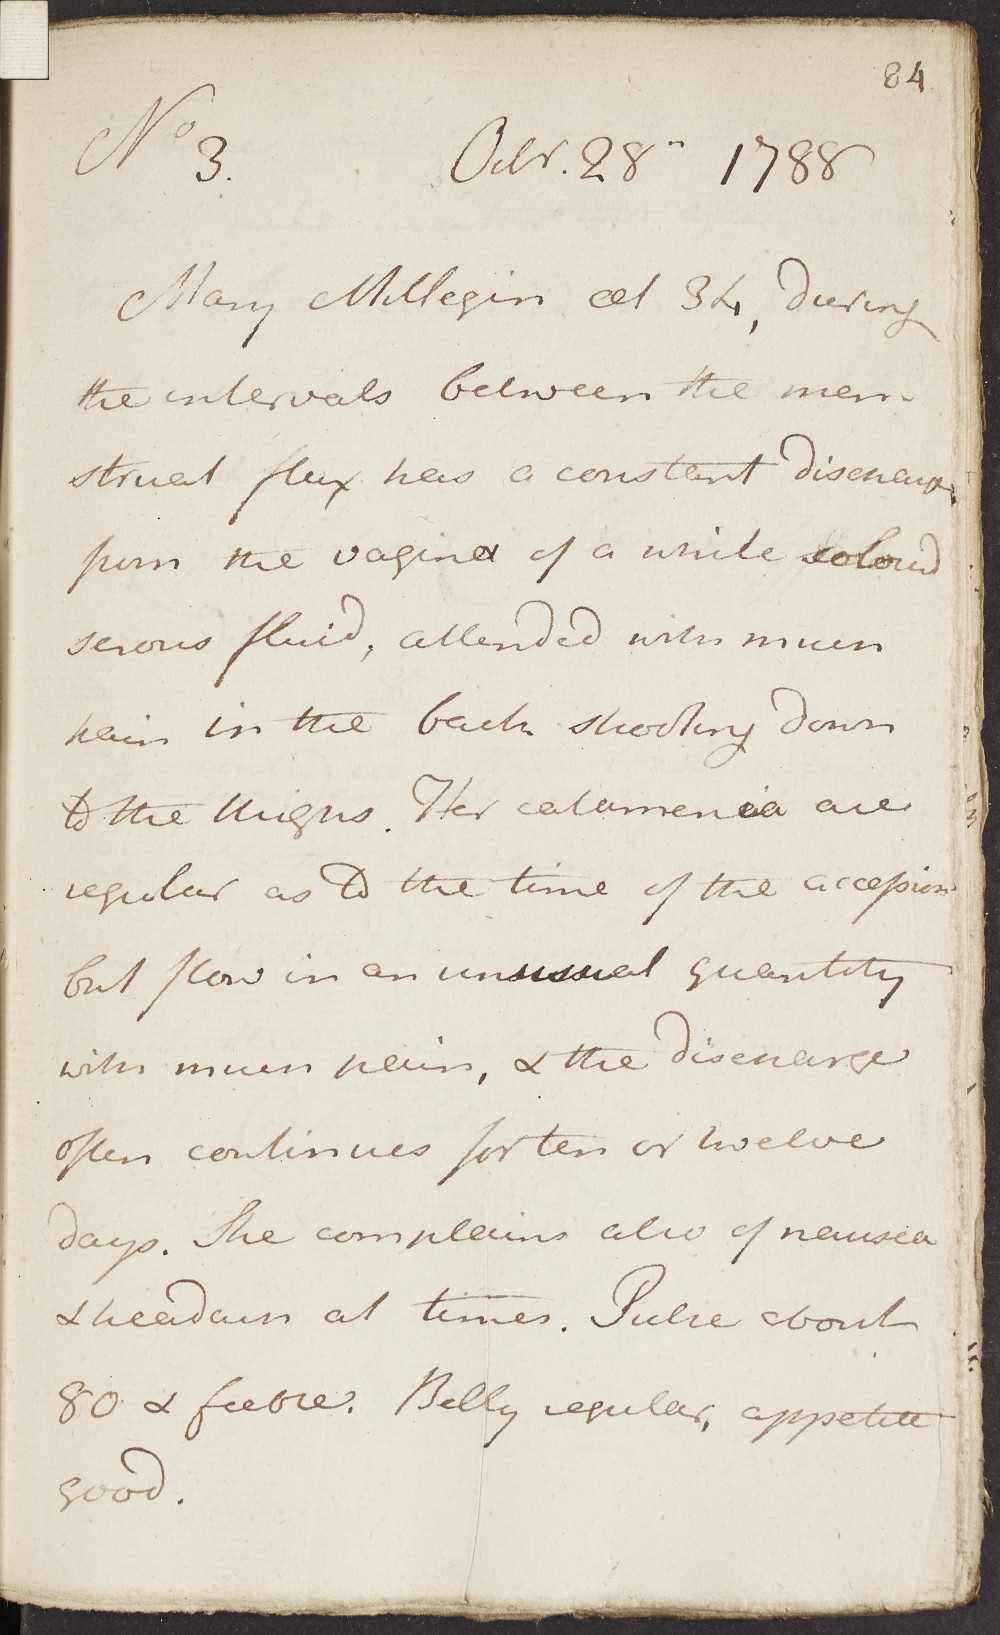 84
No 3. Octr. 28th 1788
Mary Millegin æt 34, during
the intervals between the men-
strual flux has a constant discharge
from the vagina of a white colourd
serous fluid, attended with much
pain in the back shooting down
to the thighs. Her catamenia are
regular as to the time of the accession
but flow in an unusual quantity
with much pain, & the discharge
often continues for ten or twelve
days. She complains also of nausea
& headach at times. Pulse about
80 & feeble. Belly regular, appetite
good.